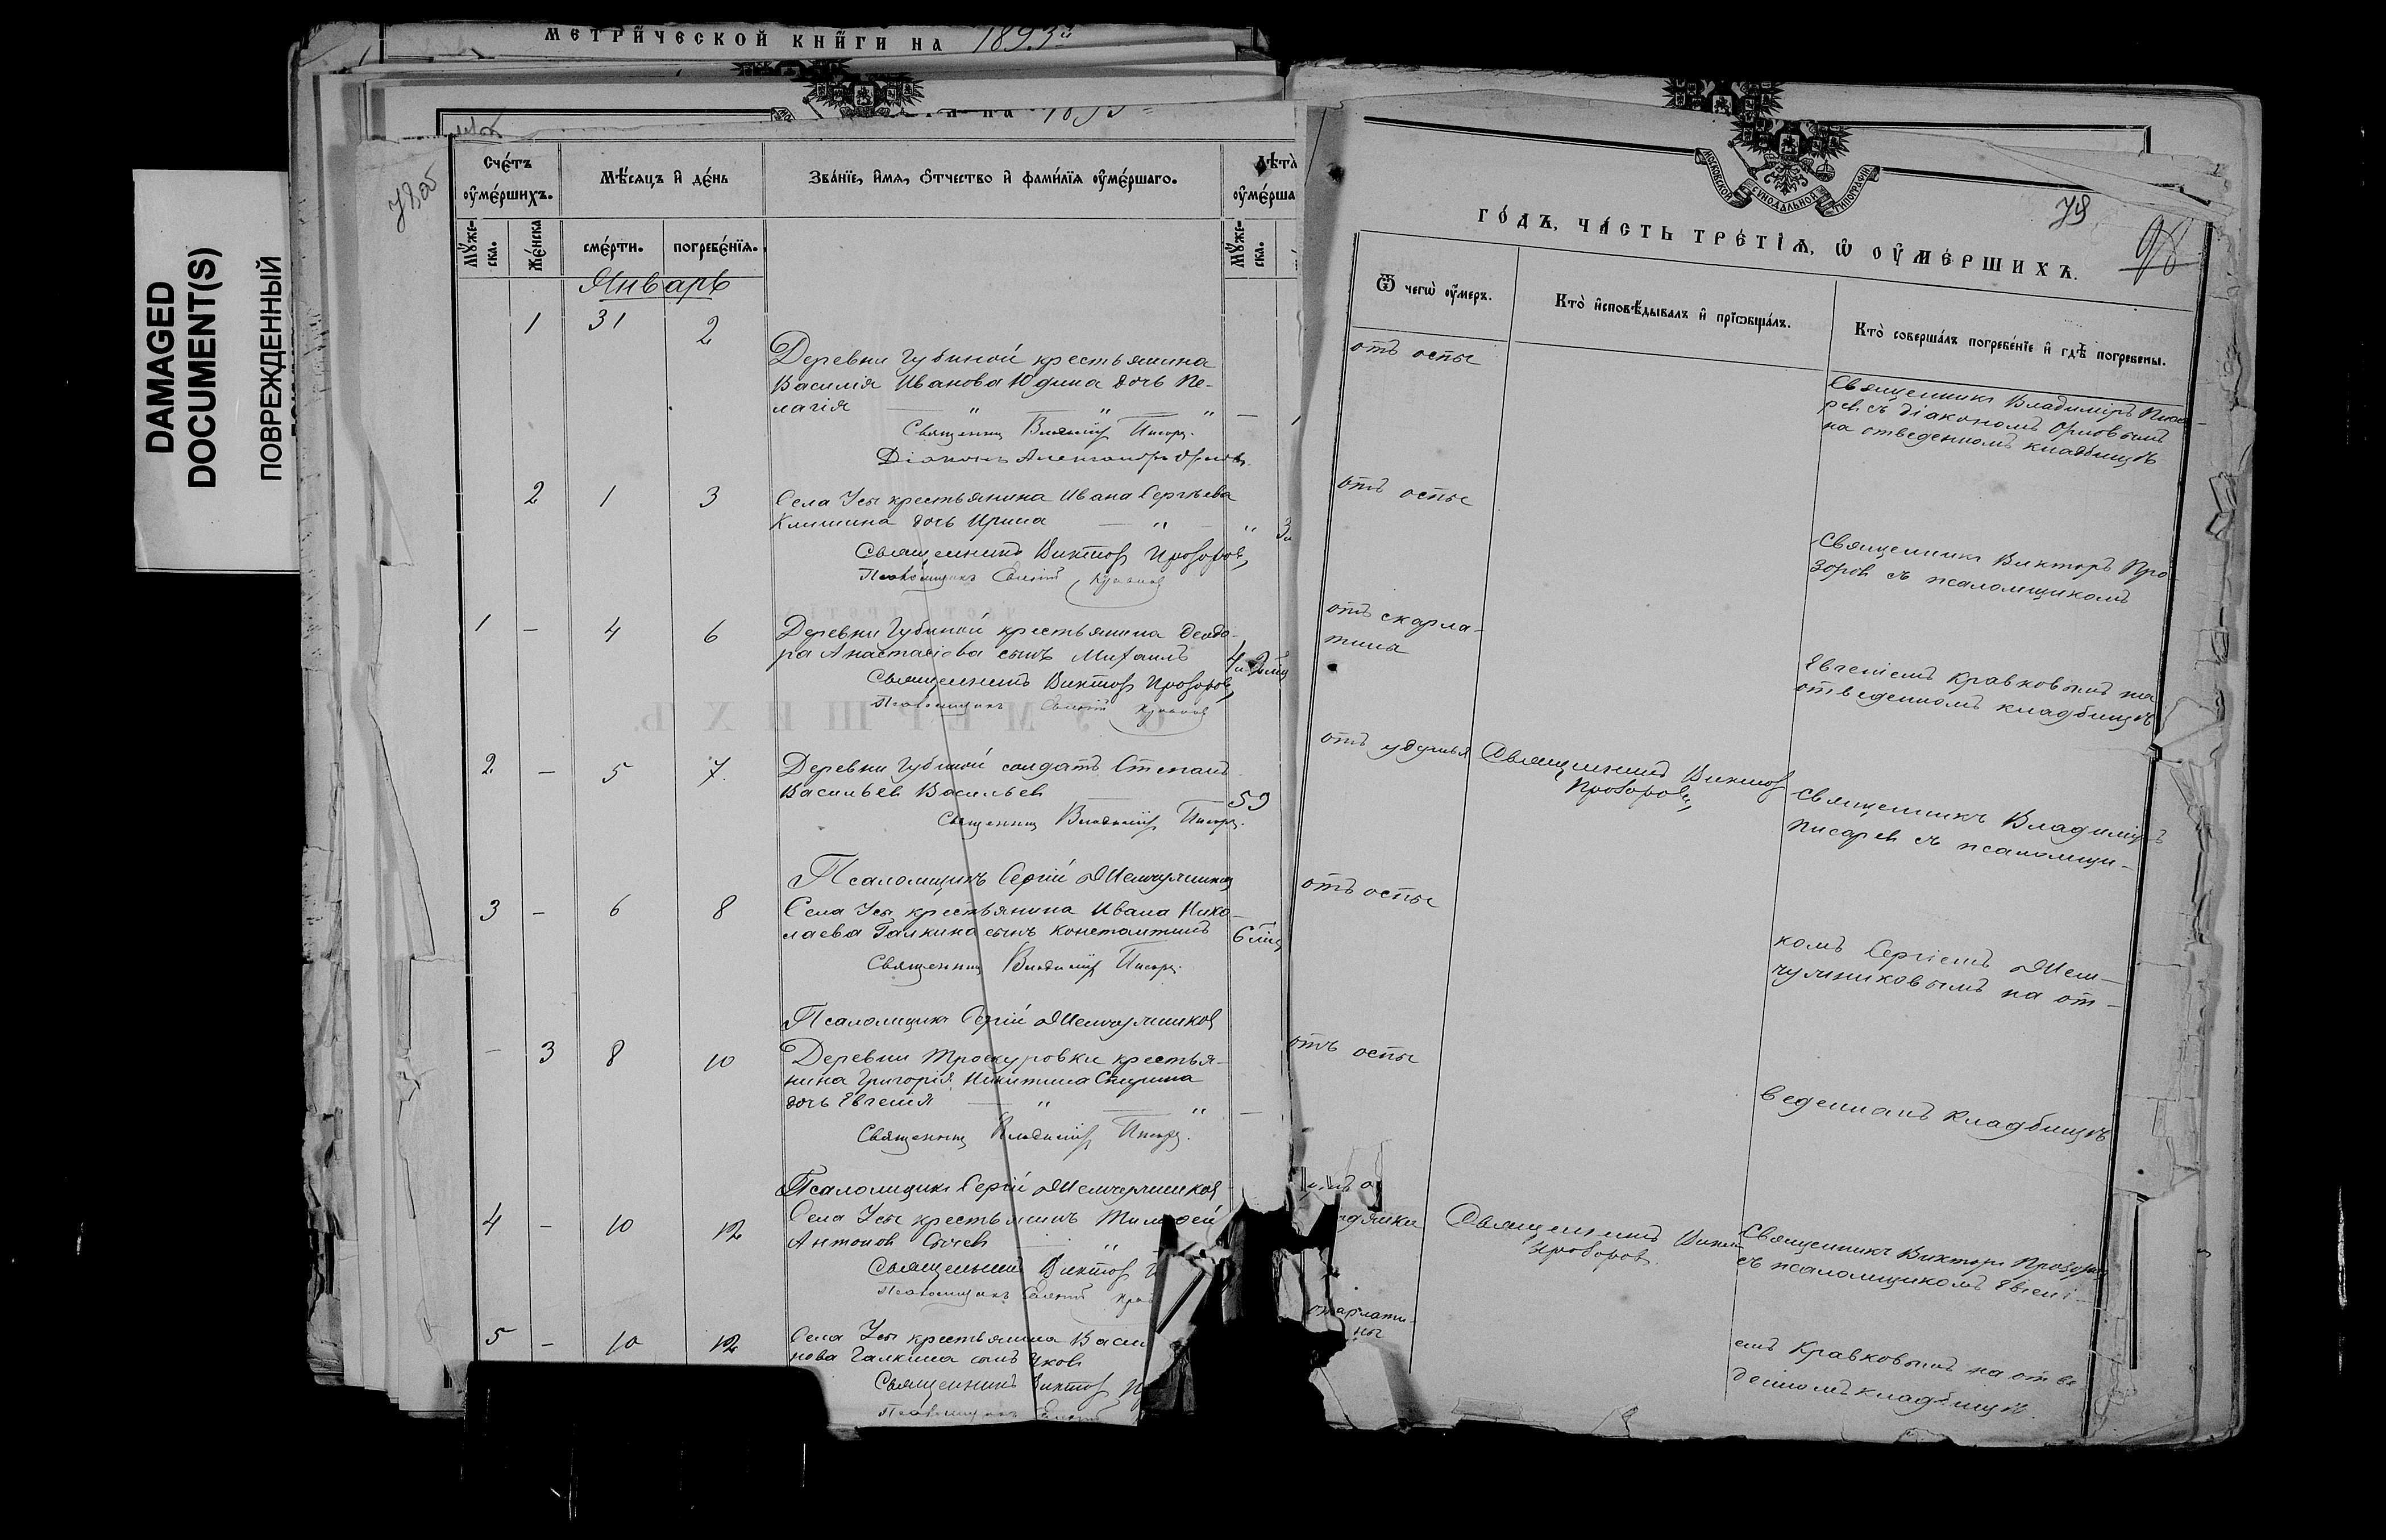 МЕТРИ́ЧЕСКОЙ КНИ́ГИ НА 1893й
DAMAGED
DOCUMENT(S)
ПОВРЕЖДЕННЫЙ
Сче́тъ оу҆ме́ршихъ.
Мѣ́сяцъ и҆ де́нь
Зва́нїе, и҆́мя, ѻ҆́тчество и҆ фами́лїя оу҆ме́ршаго.
Лѣ́та оу҆ме́рша
Му́же-ска.
Же́нска
сме́рти.
погребе́нїя.
Му́же-ска.
Январь
1 31 2
Деревни Губиной крестьянина
Василія Иванова Юдина дочь Пе-
лагія
Священник Владимір Писарев
Діаконъ Александръ Орлов
2 1 3
Села Усы крестьянина Ивана Сергѣева
Климина дочь Ирина
Священникъ Виктор Прозоров
Псаломщикъ
1 – 4 6
Деревни Губиной крестьянина Феодо-
ра Анастасіева сынъ Михаилъ
Священникъ Виктор Прозоров
Псаломщикъ
2 – 5 7
Деревни Губиной солдатъ Степанъ
Васильев Васильев
59
Священник Владимір Писарев
Псаломщикъ Сергій Жемчужников
3 – 6 8
Села Усы крестьянина Ивана Нико-
лаева Галкина сынъ Константинъ
6 мѣс
Священник Владимір Писарев
Псаломщик Сергій Жемчужников
– 3 8 10
Деревни Троекуровки крестья-
нина Григорія Никитина Спирина
дочь Евгенія
Священник Владимір Писарев
Псаломщик Сергій Жемчужников
4 – 10 12
Села Усы крестьянинъ Тимофей
Антонов Сычев
Священникъ Виктор
Псаломщикъ
5 – 10 12
Села Усы крестьянина Васи
нова Галкина сынъ Яков
Священникъ Виктор
Псаломщикъ
МОСКОВСКОЙ СѴНОДАЛЬНОЙ ТИПОГРАФІИ
79
98
ГО́ДЪ, ЧА́СТЬ ТРЕ́ТЇѦ, Ѡ҆ ОУ҆МЕ́РШИХЪ.
Ѿ чегѡ̀ оу҆́меръ.
Кто̀ и҆сповѣ́дывалъ и҆ прїѡбща́лъ.
Кто̀ соверша́лъ погребе́нїе и҆ гдѣ̀ погребены.
отъ оспы
Священникъ Владиміръ Писа
рев съ діакономъ Орловымъ
на отведенномъ кладбищѣ
отъ оспы
Священникъ Викторъ Про
зоров съ псаломщикомъ
отъ скарла-
тины
Евгеніемъ Кравковымъ на
отведенномъ кладбищѣ
отъ удушья
Священникъ Виктор
Прозоров
Священникъ Владимір
Писарев съ псаломщи-
отъ оспы
комъ Сергіемъ Жем-
чужниковымъ на от-
отъ оспы
веденномъ кладбищѣ
Священникъ
Прозоров
Священникъ Виктор Прозоров
съ псаломщикомъ Евгені-
скарлати-
ны
емъ Кравковымъ на отве-
денномъ кладбищѣ.